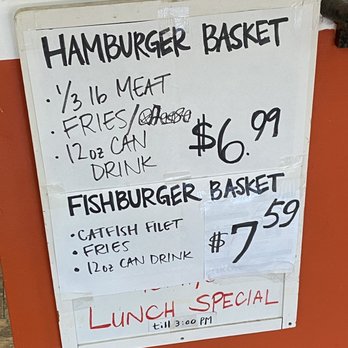 HAMBURGER BASKET
• 1/3 lb MEAT
• FRIES/
• 12oz CAN DRINK
$6.99
FISHBURGER BASKET
• CATFISH FILET
• FRIES
• 12oz CAN DRINK
$7.59
LUNCH SPECIAL
till 3:00 PM